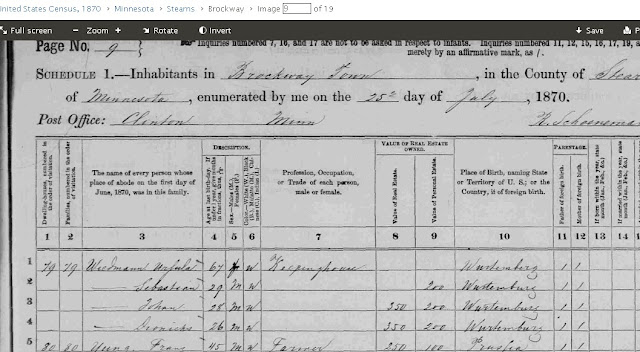 United States Census, 1870 › Minnesota › Stearns › Brockway › Image 9 of 19
Full screen − Zoom + Rotate Invert Save P
Page No. 9 Inquiries numbered 7, 16, and 17 are not to be asked in respect to infants. Inquiries numbered 11, 12, 15, 16, 17, 19,
merely by an affirmative mark, as /.
SCHEDULE 1.—Inhabitants in Brockway Town, in the County of Stear
of Minnesota, enumerated by me on the 25th day of July, 1870.
Post Office: Clinton Minn
Dwelling-houses, numbered in the order of visitation.
Families, numbered in the order of visitation.
The name of every person whose place of abode on the first day of June, 1870, was in this family.
DESCRIPTION.
Age at last birth-day. If under 1 year, give months in fractions, thus,
Sex.—Males (M.), Females (F.)
Profession, Occupation, or Trade of each person, male or female.
VALUE OF REAL ESTATE OWNED.
Value of Real Estate.
Value of Personal Estate.
Place of Birth, naming State or Territory of U. S.; or the Country, if of foreign birth.
PARENTAGE.
Father of foreign birth.
Mother of foreign birth.
If born within the year, state month (Jan., Feb., &c.)
If married within the year, state month (Jan., Feb., &c.)
1 2 3 4 5 6 7 8 9 10 11 12 13 14
1 79 79 Wiedmann Ursula 67 f w Keepinghouse Wurtemberg 1 1
2 — Sebastean 29 m w 200 Wurtemburg 1 1
3 — Johan 28 m w 350 200 Wurtemburg 1 1
4 — 26 m w 350 200 Wurtemburg 1 1
5 80 80 Yung Franz 45 m w Farmer 250 100 Prussia 1 1